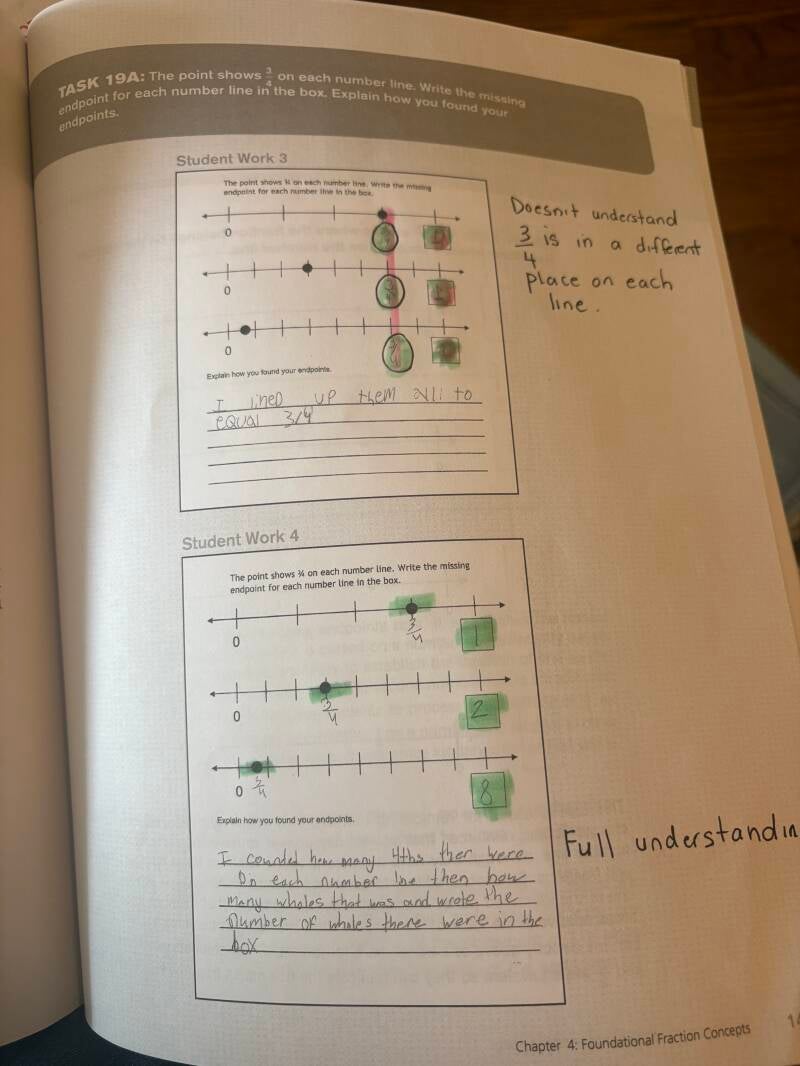 TASK 19A: The point shows 3/4 on each number line. Write the missing
endpoint for each number line in the box. Explain how you found your
endpoints.
Student Work 3
The point shows ¾ on each number line. Write the missing
endpoint for each number line in the box.
0
0
0
Explain how you found your endpoints.
I lined up them all to
equal 3/4
Doesn't understand
3/4 is in a different
place on each
line.
Student Work 4
The point shows ¾ on each number line. Write the missing
endpoint for each number line in the box.
0 3/4 1
0 3/4 2
0 3/4 8
Explain how you found your endpoints.
I counted how many 4ths ther were
On each number line then how
Many wholes that was and wrote the
Number of wholes there were in the
box
Full understandin
Chapter 4: Foundational Fraction Concepts